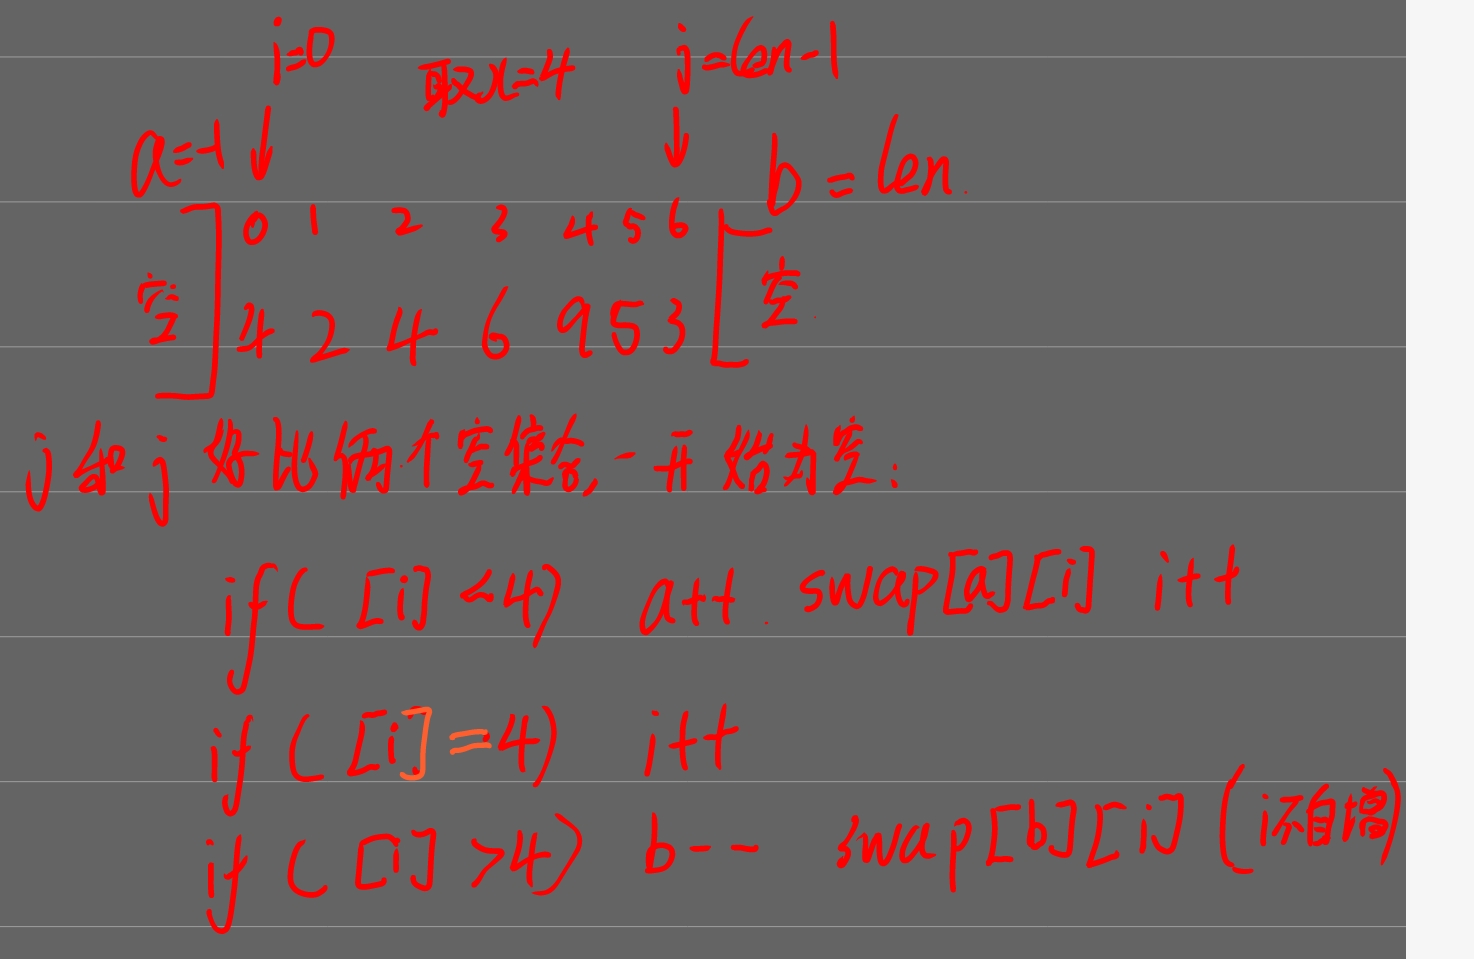 i=0 取x=4 j=len-1
a=-1 b=len.
0 1 2 3 4 5 6
空 4 2 4 6 9 5 3 空
j和j好比俩个空集合,一开始为空:
if( [i] <4) a++. swap[a][i] i++
if ( [i]=4) i++
if ( [i] >4) b-- swap[b][i] (i不自增)